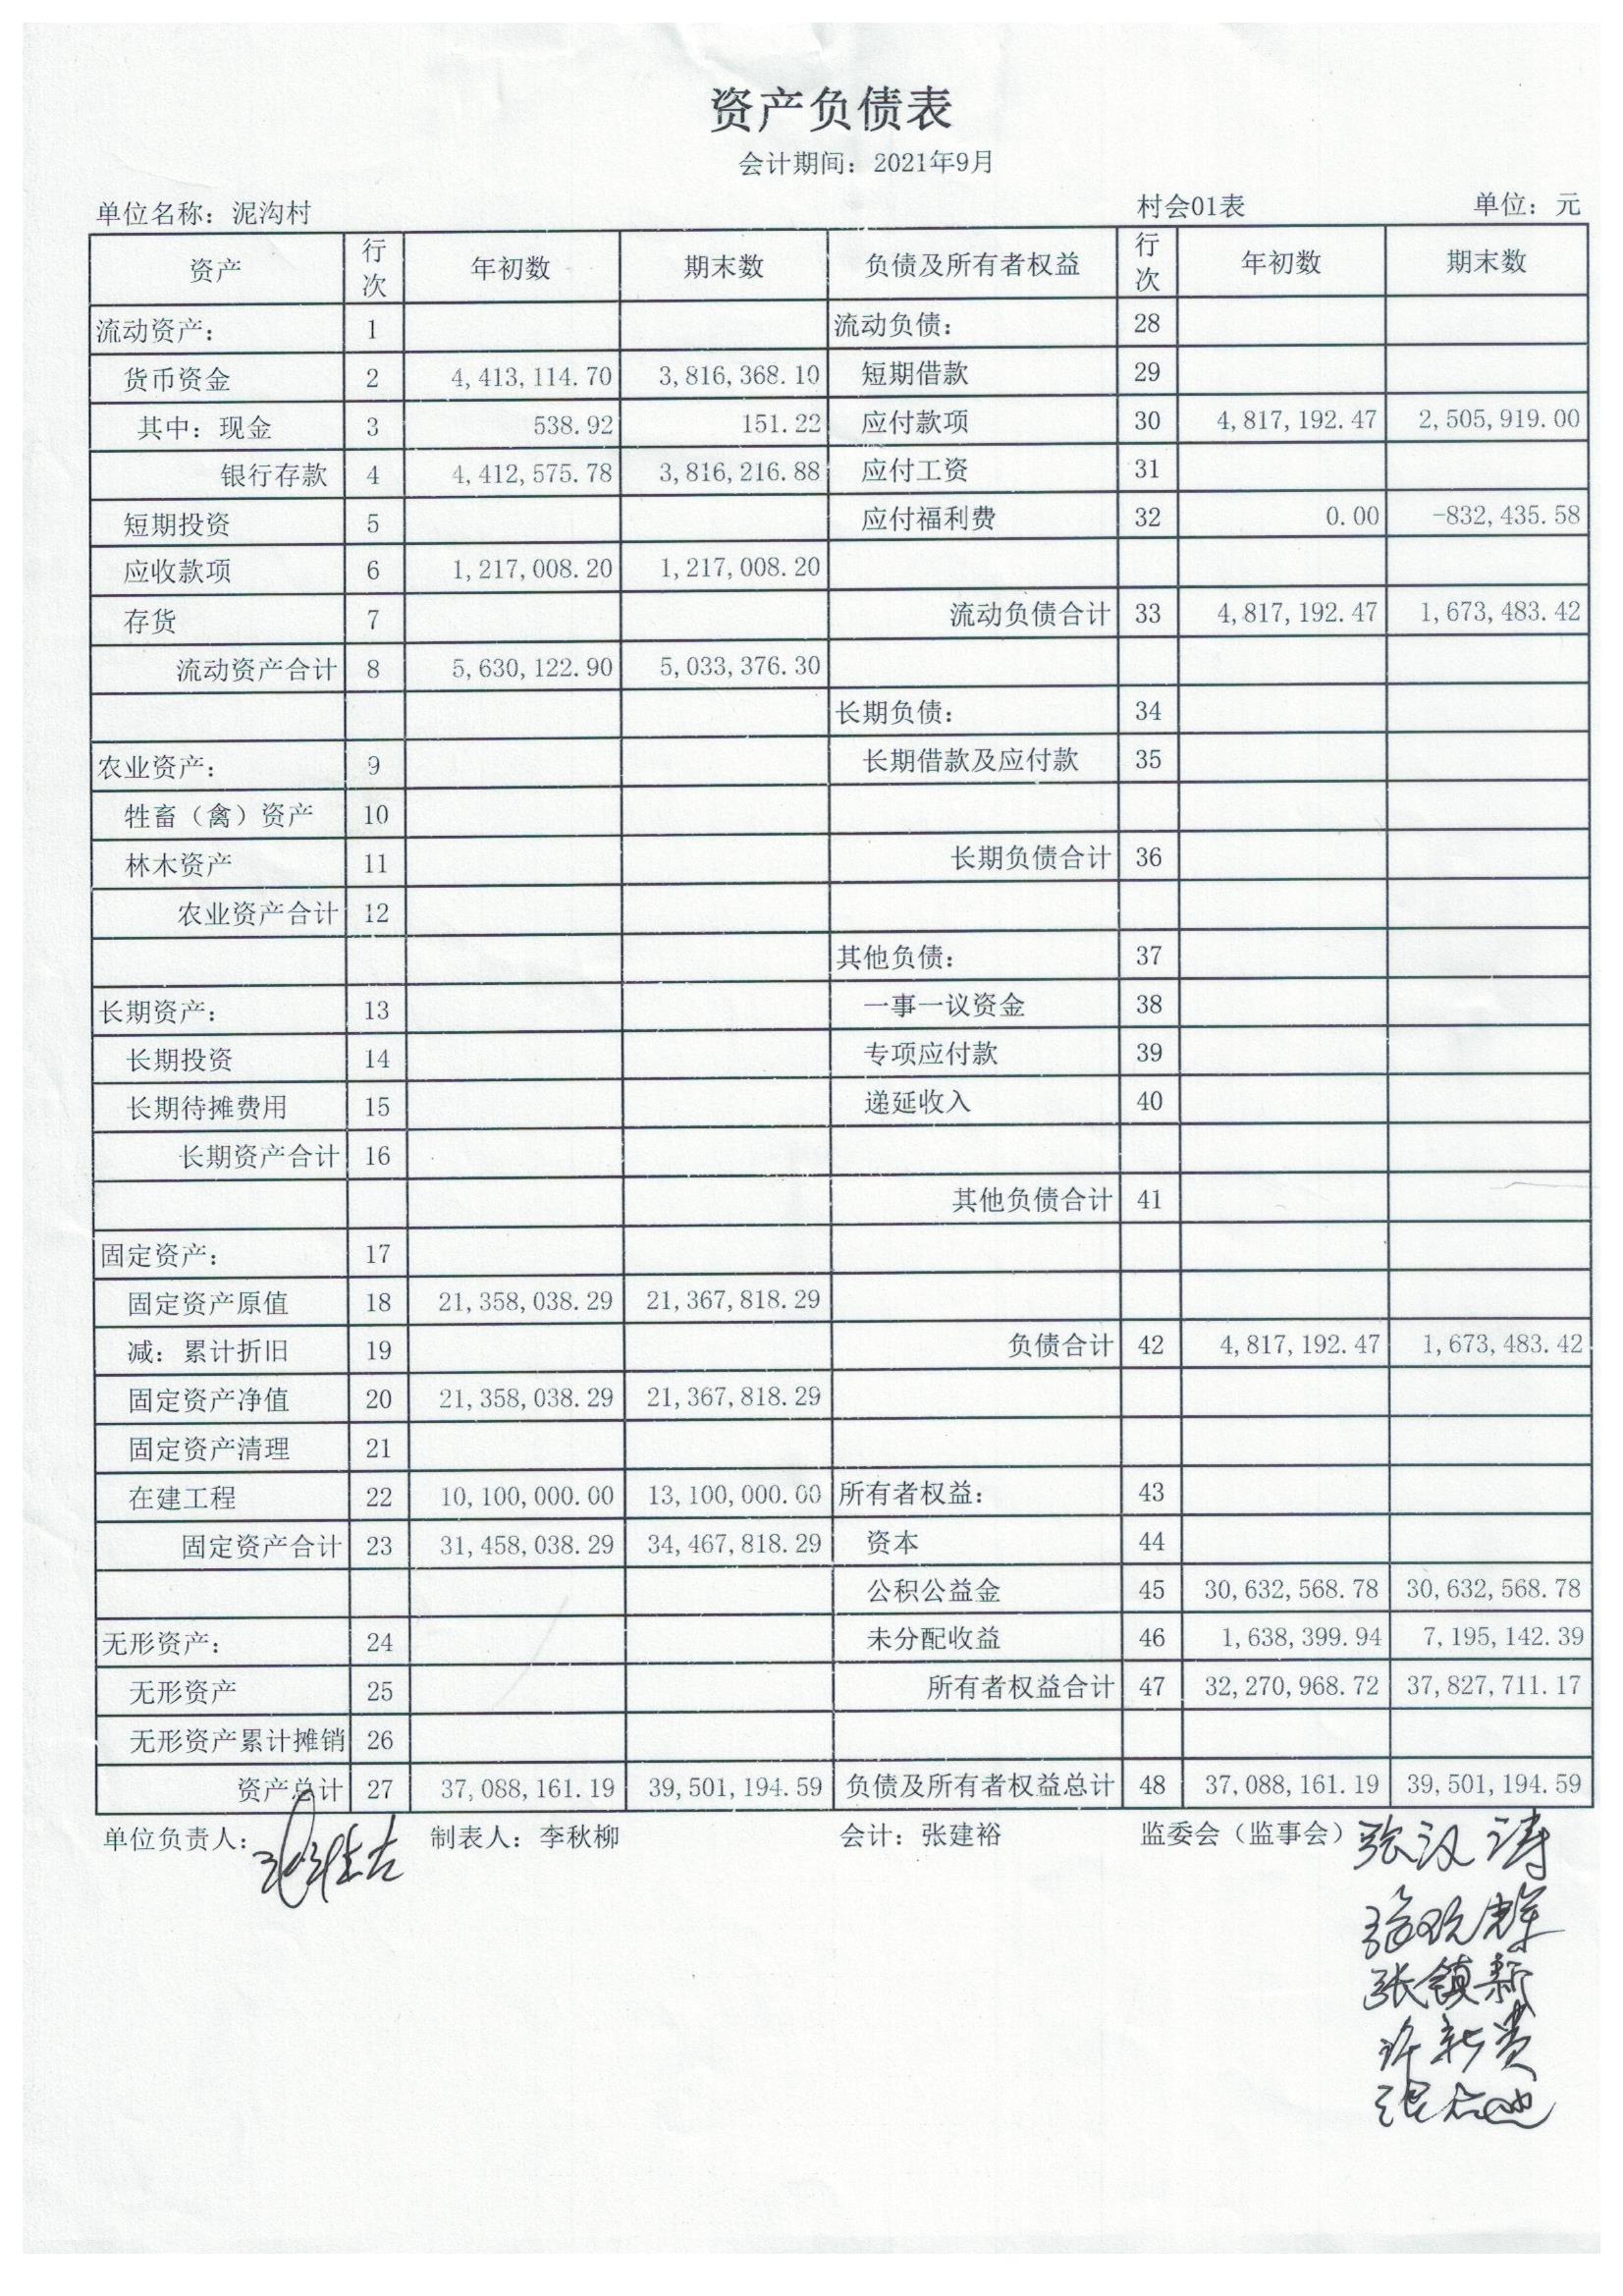 资产负债表
会计期间：2021年9月
单位名称：泥沟村 村会01表 单位：元
资产 行次 年初数 期末数 负债及所有者权益 行次 年初数 期末数
流动资产： 1 流动负债： 28
货币资金 2 4,413,114.70 3,816,368.10 短期借款 29
其中：现金 3 538.92 151.22 应付款项 30 4,817,192.47 2,505,919.00
银行存款 4 4,412,575.78 3,816,216.88 应付工资 31
短期投资 5 应付福利费 32 0.00 -832,435.58
应收款项 6 1,217,008.20 1,217,008.20
存货 7 流动负债合计 33 4,817,192.47 1,673,483.42
流动资产合计 8 5,630,122.90 5,033,376.30
长期负债： 34
农业资产： 9 长期借款及应付款 35
牲畜（禽）资产 10
林木资产 11 长期负债合计 36
农业资产合计 12
其他负债： 37
长期资产： 13 一事一议资金 38
长期投资 14 专项应付款 39
长期待摊费用 15 递延收入 40
长期资产合计 16
其他负债合计 41
固定资产： 17
固定资产原值 18 21,358,038.29 21,367,818.29
减：累计折旧 19 负债合计 42 4,817,192.47 1,673,483.42
固定资产净值 20 21,358,038.29 21,367,818.29
固定资产清理 21
在建工程 22 10,100,000.00 13,100,000.00 所有者权益： 43
固定资产合计 23 31,458,038.29 34,467,818.29 资本 44
公积公益金 45 30,632,568.78 30,632,568.78
无形资产： 24 未分配收益 46 1,638,399.94 7,195,142.39
无形资产 25 所有者权益合计 47 32,270,968.72 37,827,711.17
无形资产累计摊销 26
资产总计 27 37,088,161.19 39,501,194.59 负债及所有者权益总计 48 37,088,161.19 39,501,194.59
单位负责人： 制表人：李秋柳 会计：张建裕 监委会（监事会） 张汉涛
张镇新
许新贵